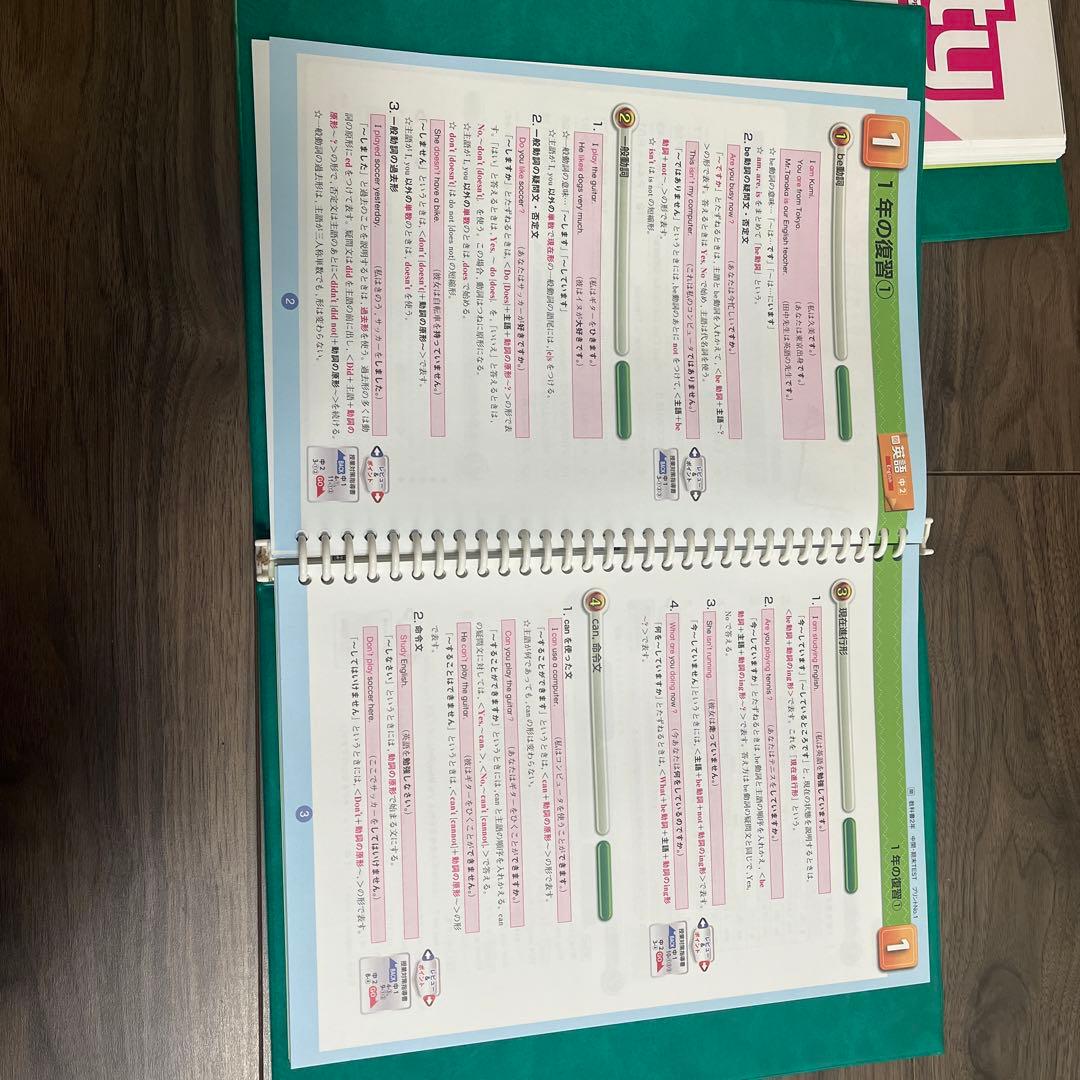 ty
1
1年の復習①
英語 中2
English
① be動詞
1. I am Kumi. (私は久美です。)
You are from Tokyo. (あなたは東京出身です。)
Mr.Tanaka is our English teacher. (田中先生は英語の先生です。)
☆ be動詞の意味…「〜は…です」「〜は…にいます」
☆ am, are, is をまとめて「be動詞」という。
2. be動詞の疑問文・否定文
Are you busy now? (あなたは今忙しいですか。)
「〜ですか」とたずねるときは、主語とbe動詞を入れかえて、<be動詞+主語〜?
>の形で表す。答えるときは Yes, No で始め、主語は代名詞を使う。
This isn't my computer. (これは私のコンピュータではありません。)
「〜ではありません」というときには、be動詞のあとに not をつけて、<主語+be
動詞+not〜.>の形で表す。
☆ isn't は is not の短縮形。
レビュー&ポイント
授業対策指導書
BACK 中1
② 一般動詞
1. I play the guitar. (私はギターをひきます。)
He likes dogs very much. (彼はイヌが大好きです。)
☆一般動詞の意味…「〜します」「〜しています」
☆主語が I, you 以外の単数で現在形の一般動詞の語尾には、[e]s をつける。
2. 一般動詞の疑問文・否定文
Do you like soccer? (あなたはサッカーが好きですか。)
「〜しますか」とたずねるときは、<Do [Does]+主語+動詞の原形〜?>の形で表
す。「はい」と答えるときは、Yes, 〜 do [does]. を、「いいえ」と答えるときは、
No, 〜 don't [doesn't]. を使う。この場合、動詞はつねに原形になる。
☆主語が I, you 以外の単数のときは、does で始める。
☆ don't [doesn't] は do not [does not] の短縮形。
She doesn't have a bike. (彼女は自転車を持っていません。)
「〜しません」というときは、<don't [doesn't]+動詞の原形〜>で表す。
☆主語が I, you 以外の単数のときは、doesn't を使う。
3. 一般動詞の過去形
I played soccer yesterday. (私はきのう、サッカーをしました。)
「〜しました」と過去のことを説明するときは、過去形を使う。過去形の多くは動
詞の原形に ed をつけて表す。疑問文は did を主語の前に出し、<Did+主語+動詞の
原形〜?>の形で、否定文は主語のあとに<didn't [did not]+動詞の原形〜>を続ける。
☆一般動詞の過去形は、主語が三人称単数でも、形は変わらない。
レビュー&ポイント
授業対策指導書
BACK 中1
中2 GO
2
教科書2年 中間・期末TEST プリントNo.1
1年の復習①
1
③ 現在進行形
1. I am studying English. (私は英語を勉強しています。)
「今〜しています」「〜しているところです」と、現在の状態を説明するときは、
<be動詞+動詞のing形>で表す。これを「現在進行形」という。
2. Are you playing tennis? (あなたはテニスをしていますか。)
「今〜していますか」とたずねるときは、be動詞と主語の順序を入れかえ、<be
動詞+主語+動詞のing形〜?>で表す。答え方は be動詞の疑問文と同じで、Yes,
No で答える。
3. She isn't running. (彼女は走っていません。)
「今〜していません」というときには、<主語+be動詞+not+動詞のing形>で表す。
4. What are you doing now? (今あなたは何をしているのですか。)
「何を〜していますか」とたずねるときは、<What+be動詞+主語+動詞のing形
〜?>で表す。
レビュー&ポイント
授業対策指導書
BACK 中1
中2 GO
④ can, 命令文
1. can を使った文
I can use a computer. (私はコンピュータを使うことができます。)
「〜することができます」というときは、<can+動詞の原形〜>の形で表す。
☆主語が何であっても、can の形は変わらない。
Can you play the guitar? (あなたはギターをひくことができますか。)
「〜することができますか」というときには、can と主語の順序を入れかえる。can
の疑問文に対しては、<Yes, 〜 can.>、<No, 〜 can't [cannot].>で答える。
He can't play the guitar. (彼はギターをひくことができません。)
「〜することはできません」というときは、<can't [cannot]+動詞の原形〜>の形
で表す。
2. 命令文
Study English. (英語を勉強しなさい。)
「〜しなさい」というときには、動詞の原形で始まる文にする。
Don't play soccer here. (ここでサッカーをしてはいけません。)
「〜してはいけません」というときには、<Don't+動詞の原形〜.>の形で表す。
レビュー&ポイント
授業対策指導書
BACK 中1
中2 GO
3